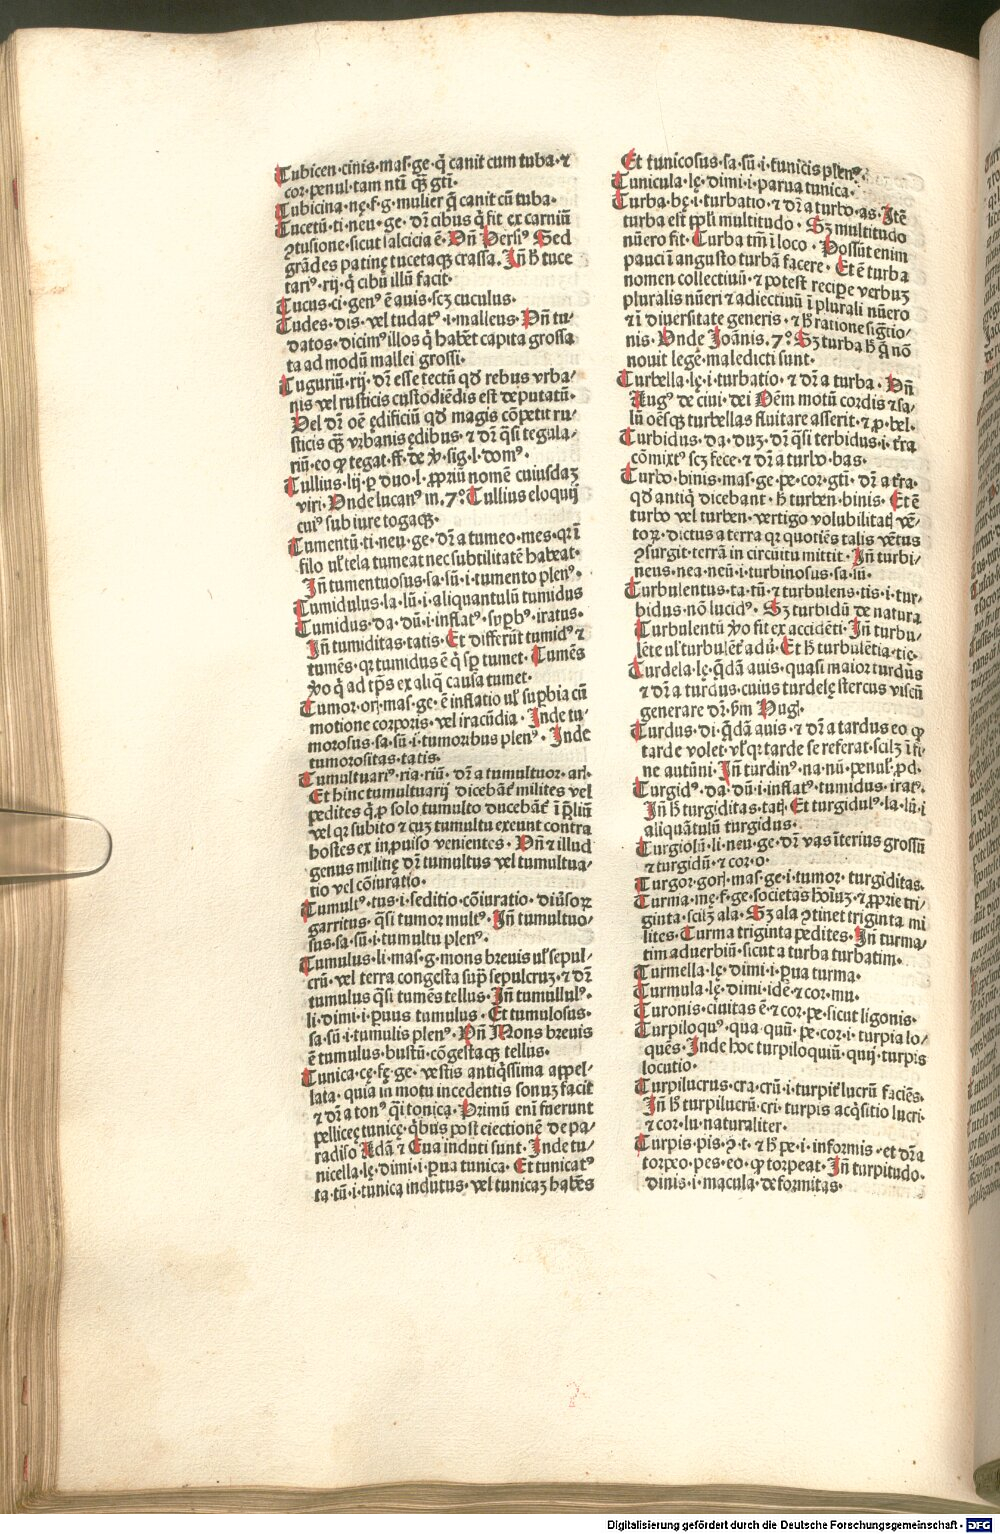 Tubicen·cinis·mas·ge·q̄ canit cum tuba·⁊
cor·penul·tam ntī qꝫ̄ gtī·
Tubicina·nę·f·g·mulier q̄ canit cū tuba·
Tucetū·ti·neu·ge·dr̄ cibus q̄ fit ex carniū
ꝯtusione·sicut lalcicia ē·Vn̄ Persiꝰ Sed
grādes patinę tucetaqꝫ crassa·Jn̄ h̄ tuce
tariꝰ·rij·q̄ cibū illū facit·
Tucus·ci·genꝰ ē auis·scꝫ cuculus·
Tudes·dis·vel tudatꝰ·i·malleus·Vn̄ tu⸗
datos·dicimꝰ illos q̄ habēt capita grossa
ta ad modū mallei grossi·
Tuguriū·rij·dr̄ esse tectū qď rebus vrba⸗
nis vel rusticis custodiēdis est deputatū·
Vel dr̄ oē edificiū qď magis cōpetit ru⸗
sticis qꝫ̄ vrbanis ędibus·⁊ dr̄ q̄si tegula⸗
riū·eo ꝙ tegat·ff·de v̊·sig·l·domꝰ·
Tullius·lij·ꝑ duo·l·ꝓpriū nomē cuiusdaꝫ
viri·Vnde lucanꝰ in·7·°Tullius eloquij
cuiꝰ sub iure togaqꝫ·
Tumentū·ti·neu·ge·dr̄ a tumeo·mes·qꝛ ī
filo vl̄ tela tumeat nec subtilitatē habeat·
Jn̄ tumentuosus·sa·sū·i·tumento plenꝰ·
Tumidulus·la·lū·i·aliquantulū tumidus
Tumidus·da·dū·i·inflatꝰ·suꝑbꝰ·iratus·
Jn̄ tumiditas·tatis·Et differūt tumidꝰ ⁊
tumēs·qꝛ tumidus ē q̄ sꝑ tumet·Tumēs
v̊o q̄ ad tp̄s ex aliq̄ causa tumet·
Tumor·orꝭ·mas·ge·ē inflatio vl̄ suꝑbia cū
motione corporis·vel iracūdia·Inde tu⸗
morosus·sa·sū·i·tumoribus plenꝰ·Inde
tumorositas·tatis·
Tumultuariꝰ·ria·riū·dr̄ a tumultuor·arꝭ·
Et hinc tumultuarij dicebāt milites vel
pedites q̄ ꝓ solo tumulto ducebāt ī p̄liū
vel qꝛ subito ⁊ cuꝫ tumultu exeunt contra
hostes ex inꝓuiso venientes·Vn̄ ⁊ illud
genus militię dr̄ tumultus vel tumultua⸗
tio vel cōiuratio·
Tumultꝰ·tus·i·seditio·cōiuratio·diūsoꝝ
garritus·q̄si tumor multꝰ·Jn̄ tumultuo⸗
sus·sa·sū·i·tumultu plenꝰ·
Tumulus·li·mas·g·mons brevis vl̄ sepul⸗
crū·vel terra congesta supꝰ sepulcruꝫ·⁊ dr̄
tumulus q̄si tumēs tellus·Jn̄ tumullulꝰ·
li·dimi·i·ꝑuus tumulus·Et tumulosus·
sa·sū·i·tumulis plenꝰ·Vn̄ Mons brevis
ē tumulus·bustū·cōgestaqꝫ tellus·
Tunica·cę·fę·ge·vestis antiq̄ssima appel⸗
lata·quia in motu incedentis sonuꝫ facit
⁊ dr̄ a tonꝰ q̄i tonica·Primū enī fuerunt
pellicęę tunicę·q̄bus post eiectionē de pa⸗
radiso Adā ⁊ Eua induti sunt·Inde tu⸗
nicella·lę·dimi·i·ꝑua tunica·Et tunicatꝰ
ta·tū·i·tunica indutus·vel tunicaꝫ habēs
Et tunicosus·sa·sū·i·tunicis plenꝰ·
Tunicula·lę·dimi·i·parua tunica·
Turba·bę·i·turbatio·⁊ dr̄ a turbo·as·Itē
turba est ppl̄i multitudo·Sꝫ multitudo
nūero fit·Turba tm̄ ī loco·Possūt enim
pauci ī angusto turbā facere·Et ē turba
nomen collectiuū·⁊ potest recipe verbuꝫ
pluralis nūeri ⁊ adiectiuū ī plurali nūero
⁊ ī diversitate generis·⁊ h̄ ratione sig̅tio⸗
nis·Vnde Joānis·7·°Sꝫ turba h̄ q̄ nō
novit legē·maledicti sunt·
Turbella·lę·i·turbatio·⁊ dr̄ a turba·Vn̄
Augꝰ de ciui·dei Oēm motū cordis ⁊ sa⸗
lū oēsqꝫ turbellas fluitare asserit·⁊ ꝓ·bel·
Turbidus·da·duꝫ·dr̄ q̄si terbidus·i·tr̄a
cōmixtꝰ scꝫ fece·⁊ dr̄ a turbo·bas·
Turbo·binis·mas·ge·pe·cor·gtī·dr̄ a tr̄a·
qď antiq̄ dicebant·h̄ turben·binis·Et ē
turbo vel turben·vertigo volubilitatꝭ vē⸗
toꝝ·dictus a terra qꝛ quotiēs talis vētus
ꝯsurgit·terrā in circuitu mittit·Jn̄ turbi⸗
neus·nea·neū·i·turbinosus·sa·sū·
Turbulentus·ta·tū·⁊ turbulens·tis·i·tur⸗
bidus·nō lucidꝰ·Sꝫ turbidū de natura
Turbulentū v̊o fit ex accidēti·Jn̄ turbu⸗
lēte vl̄ turbulēť adū·Et h̄ turbulētia·tię·
Turdela·lę·q̄dā auis·quasi maior turdus
⁊ dr̄ a turdus·cuius turdelę stercus viscū
generare dr̄·ẜm Hugꝭ·
Turdus·di·q̄dā auis·⁊ dr̄ a tardus eo ꝙ
tarde volet·vl̄ qꝛ tarde se referat·scilꝫ ī fi⸗
ne autūni·Jn̄ turdinꝰ·na·nū·penul̄·ꝓd·
Turgidꝰ·da·dū·i·inflatꝰ·tumidus·iratꝰ·
Jn̄ h̄ turgiditas·tatꝭ·Et turgidulꝰ·la·lū·i
aliquātulū turgidus·
Turgiolū·li·neu·ge·dr̄ vas īterius grossū
⁊ turgidū·⁊ cor·o·
Turgor·gorꝭ·mas·ge·i·tumor·turgiditas·
Turma·mę·f·ge·societas hoīuꝫ·⁊ ꝓprie tri⸗
ginta·scilꝫ ala·Sꝫ ala ꝯtinet triginta mi
lites·Turma triginta pedites·Jn̄ turma⸗
tim aduerbiū·sicut a turba turbatim·
Turmella·lę·dimi·i·ꝑua turma·
Turmula·lę·dimi·idē·⁊ cor·mu·
Turonis·ciuitas ē·⁊ cor·pe·sicut ligonis·
Turpiloquꝰ·qua·quū·pe·cor·i·turpia lo⸗
quēs·Inde hoc turpiloquiū·quij·turpis
locutio·
Turpilucrus·cra·crū·i·turpiť lucrū faciēs·
Jn̄ h̄ turpilucrū·cri·turpis acq̄sitio lucri·
⁊ cor·lu·naturaliter·
Turpis·pis·ꝯ·t·⁊ h̄ pe·i·informis·et dr̄ a
torpeo·pes·eo·ꝙ torpeat·Jn̄ turpitudo·
dinis·i·macula·deformitas·
Digitalisierung gefördert durch die Deutsche Forschungsgemeinschaft - DFG